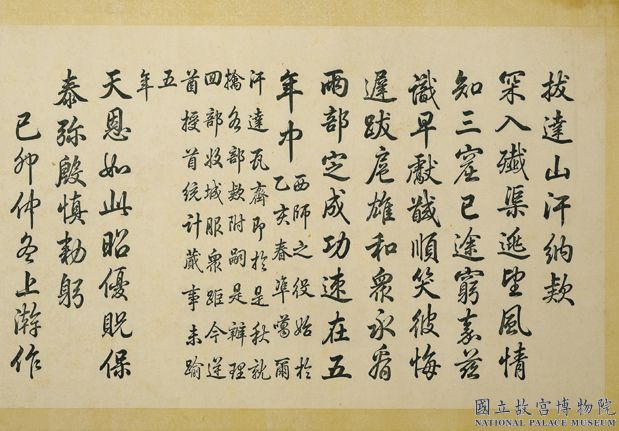 拔達山汗納款
深入殲渠逃望風情
知三窟已途窮嘉茲
識早獻馘順笑彼悔
遲跋扈雄和衆永看
兩部定成功速在五
年中
西師之役始於
乙亥春準噶爾
汗達瓦齊即於是秋就
擒各部款附嗣是辦理
回部收城服衆距今逆
酋授首統計蕆事未踰
五
年
天恩如此昭優貺保
泰弥殷慎勅躬
己卯仲冬上澣作
國立故宮博物院
NATIONAL PALACE MUSEUM